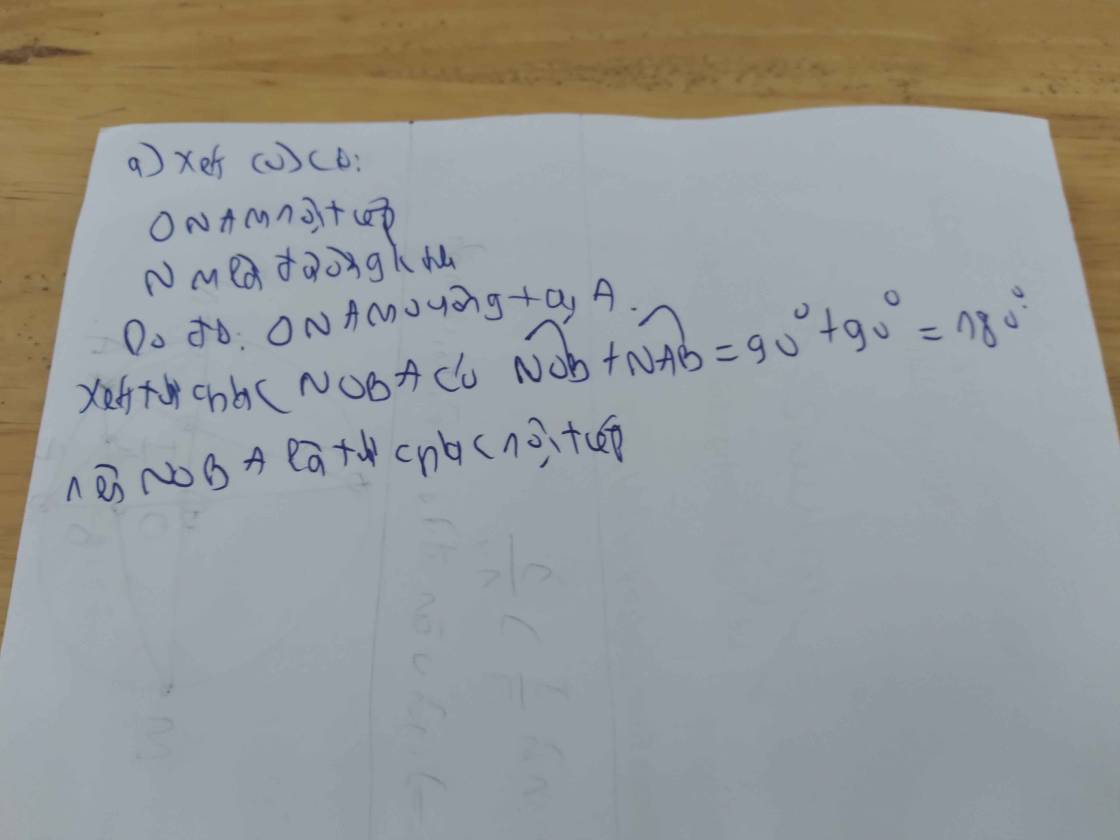 a) Xét (O) có:
ΔNAM nội tiếp
NM là đường kính
Do đó: ΔNAM vuông tại A.
Xét tứ giác NOBA có \widehat{NOB} + \widehat{NAB} = 90° + 90° = 180°
nên NOBA là tứ giác nội tiếp